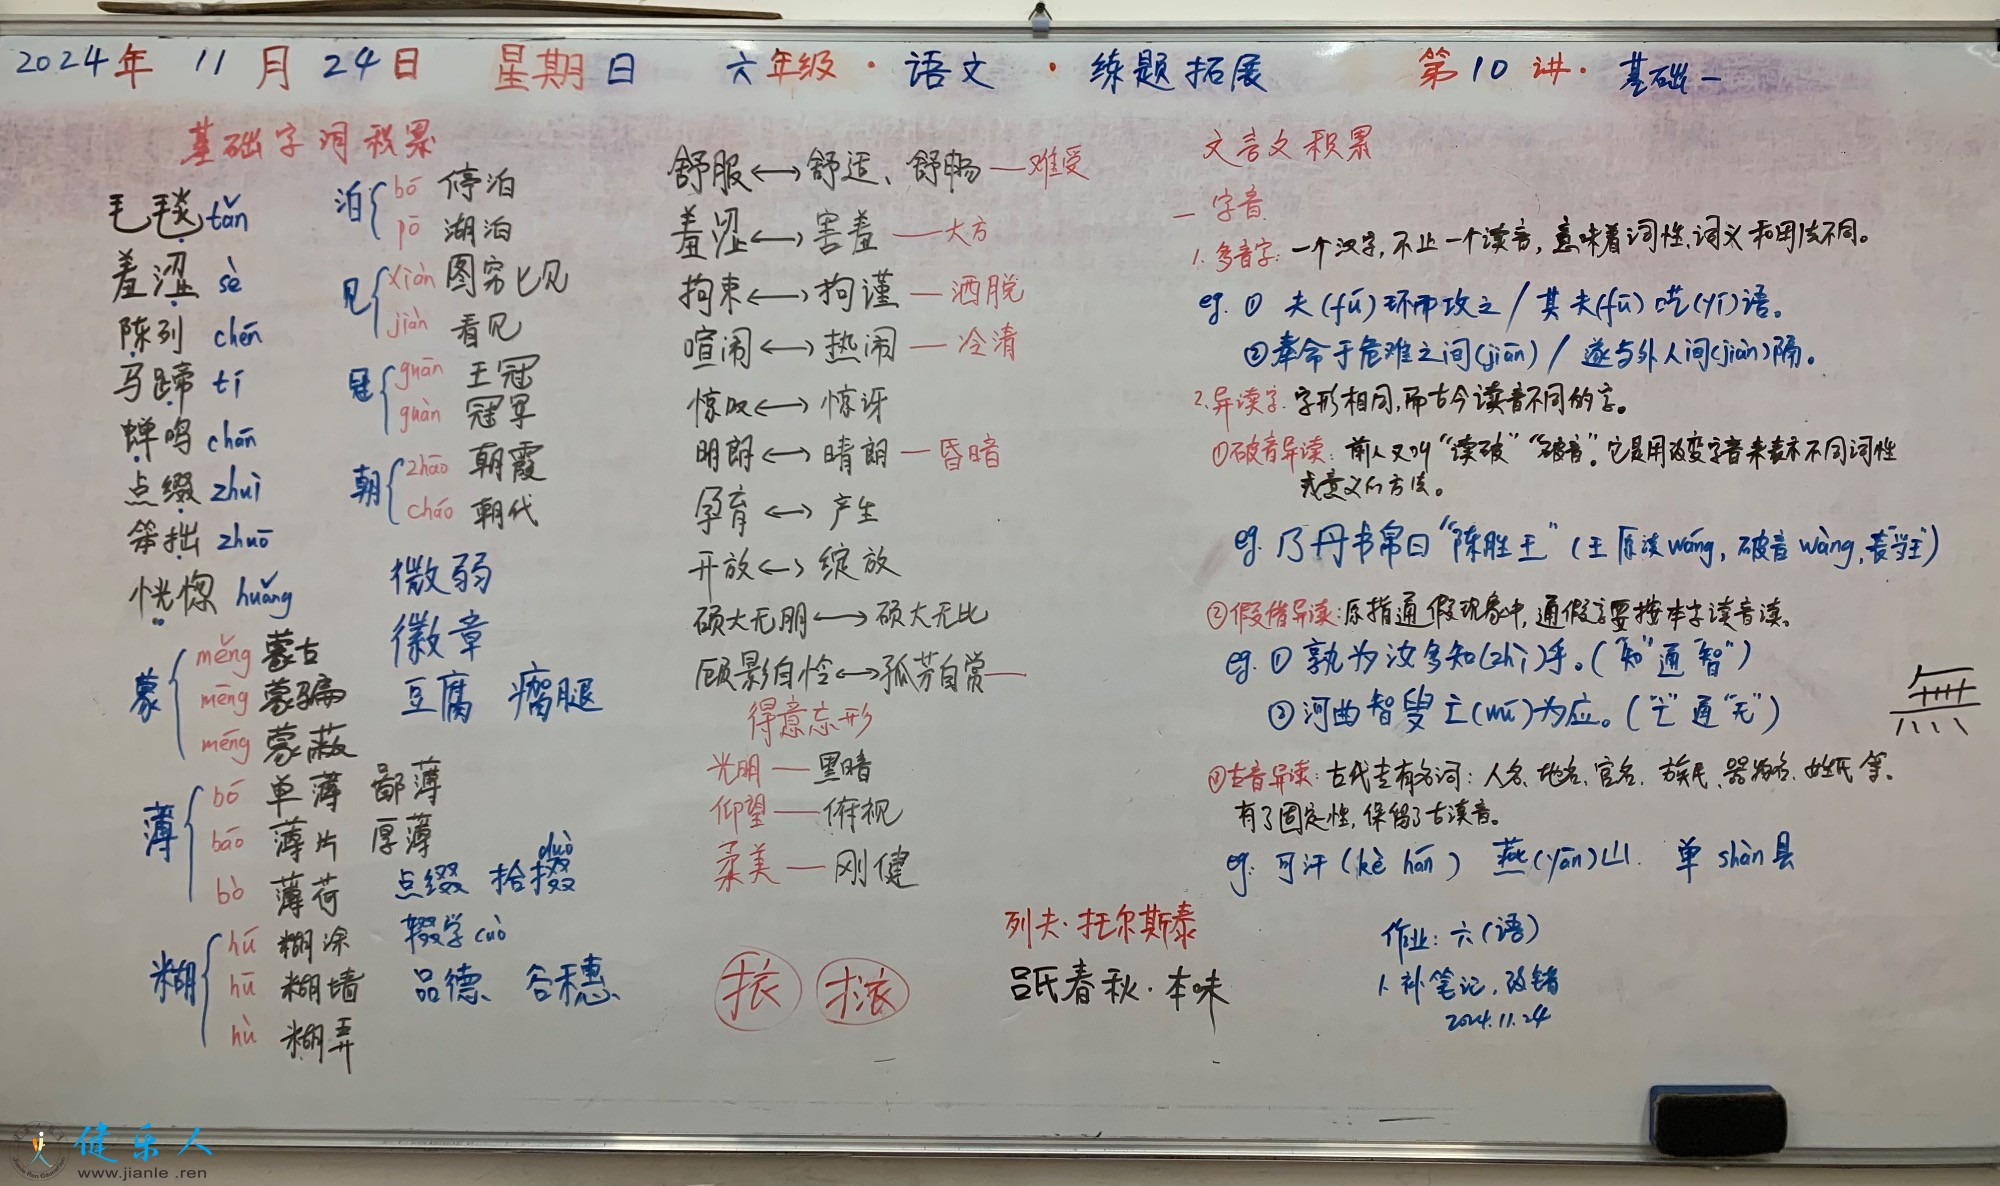 2024年 11月 24日 星期日 六年级·语文·练题拓展 第10讲·基础一
基础字词积累
毛毯 tǎn
羞涩 sè
陈列 chén
马蹄 tí
蝉鸣 chán
点缀 zhuì
笨拙 zhuō
恍惚 huǎng
蒙 měng 蒙古
mēng 蒙骗
méng 蒙蔽
薄 bó 单薄 鄙薄
báo 薄片 厚薄
bò 薄荷
糊 hú 糊涂
hū 糊墙
hù 糊弄
泊 bó 停泊
pō 湖泊
见 xiàn 图穷匕见
jiàn 看见
冠 guān 王冠
guàn 冠军
朝 zhāo 朝霞
cháo 朝代
微弱
徽章
豆腐 瘸腿
点缀 拾掇 duò
辍学 cuò
品德、谷穗、
舒服←→舒适、舒畅—难受
羞涩←→害羞—大方
拘束←→拘谨—洒脱
喧闹←→热闹—冷清
惊叹←→惊讶
明朗←→晴朗—昏暗
孕育←→产生
开放←→绽放
硕大无朋←→硕大无比
顾影自怜←→孤芳自赏—
得意忘形
光明—黑暗
仰望—俯视
柔美—刚健
列夫·托尔斯泰
吕氏春秋·本味
文言文积累
一 字音
1.多音字:一个汉字,不止一个读音,意味着词性、词义和用法不同。
eg.① 夫(fú)环而攻之/其夫(fū)呓(yì)语。
②奉命于危难之间(jiān)/遂与外人间(jiàn)隔。
2.异读字.字形相同,而古今读音不同的字。
①破音异读:前人又叫“读破”“破音”。它是用改变字音来表示不同词性
或意义的方法。
eg.乃丹书帛曰“陈胜王”(王原读wáng,破音wàng,表“当王”)
②假借异读:原指通假现象中,通假字要按本字读音读。
eg.①孰为汝多知(zhì)乎。(“知”通“智”)
②河曲智叟亡(wú)为应。(“亡”通“无”)
無
③古音异读:古代专有名词:人名、地名、官名、族民、器物名、姓氏等。
有了固定性,保留了古读音。
eg:可汗(kè hán) 燕(yān)山. 单shàn县
作业:六(语)
1.补笔记,改错
2024.11.24
健乐人
www.jianle.ren